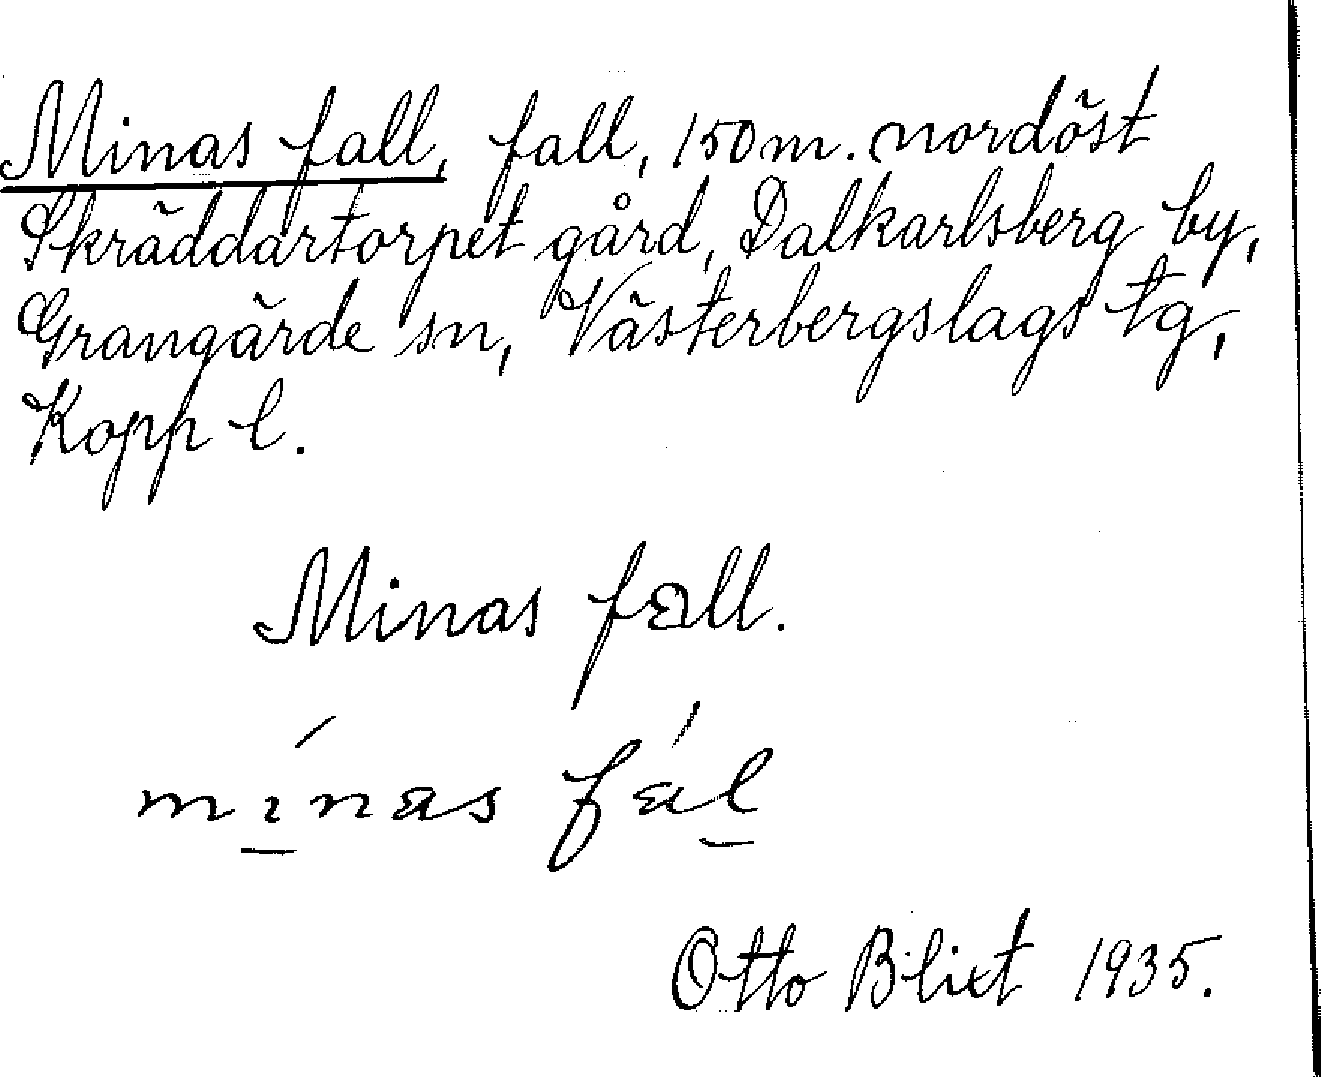 Minas fall, fall, 150 m. nordöst
Skräddartorpet gård, Dalkarlsberg by,
Grangärde sn, Västerbergslags tg,
Kopp l.
Minas fall.
mínas fál
Otto Blixt 1935.